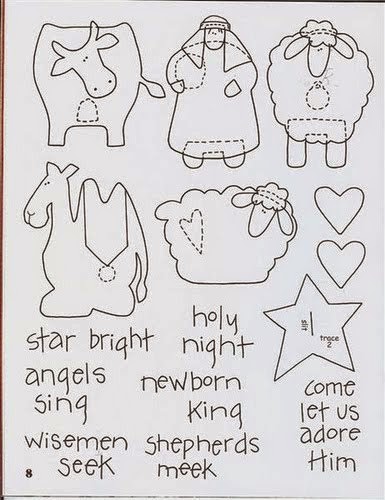 slit
trace
2
star bright
holy
night
angels
sing
newborn
King
come
let us
adore
Him
wisemen
seek
shepherds
meek
8